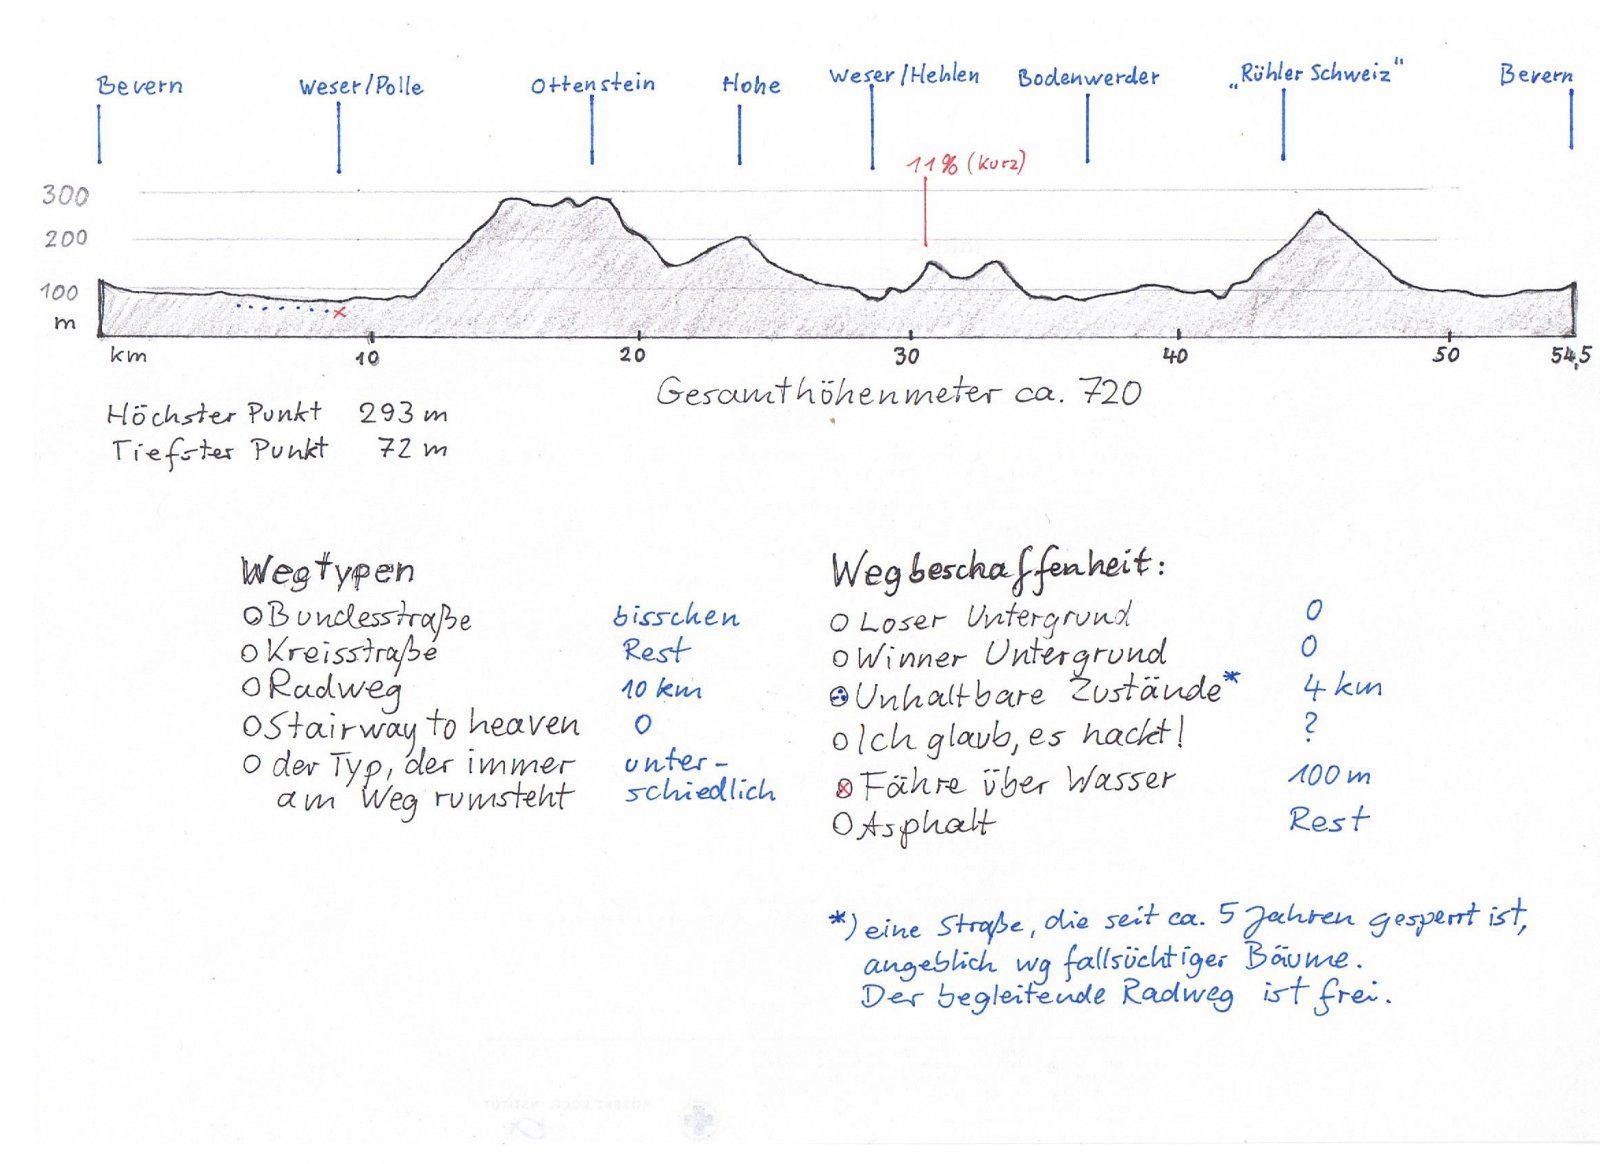 Bevern Weser/Polle Ottenstein Hohe Weser/Hehlen Bodenwerder „Rühler Schweiz“ Bevern
11% (kurz)
300
200
100
m
km 10 20 30 40 50 54,5
Gesamthöhenmeter ca. 720
Höchster Punkt 293 m
Tiefster Punkt 72 m
Wegtypen
O Bundesstraße bisschen
O Kreisstraße Rest
O Radweg 10 km
O Stairway to heaven 0
O der Typ, der immer unter-
am Weg rumsteht schiedlich
Wegbeschaffenheit:
O Loser Untergrund 0
O Winner Untergrund 0
Unhaltbare Zustände* 4 km
O Ich glaub, es hackt! ?
⊗ Fähre über Wasser 100 m
O Asphalt Rest
*) eine Straße, die seit ca. 5 Jahren gesperrt ist,
angeblich wg fallsüchtiger Bäume.
Der begleitende Radweg ist frei.